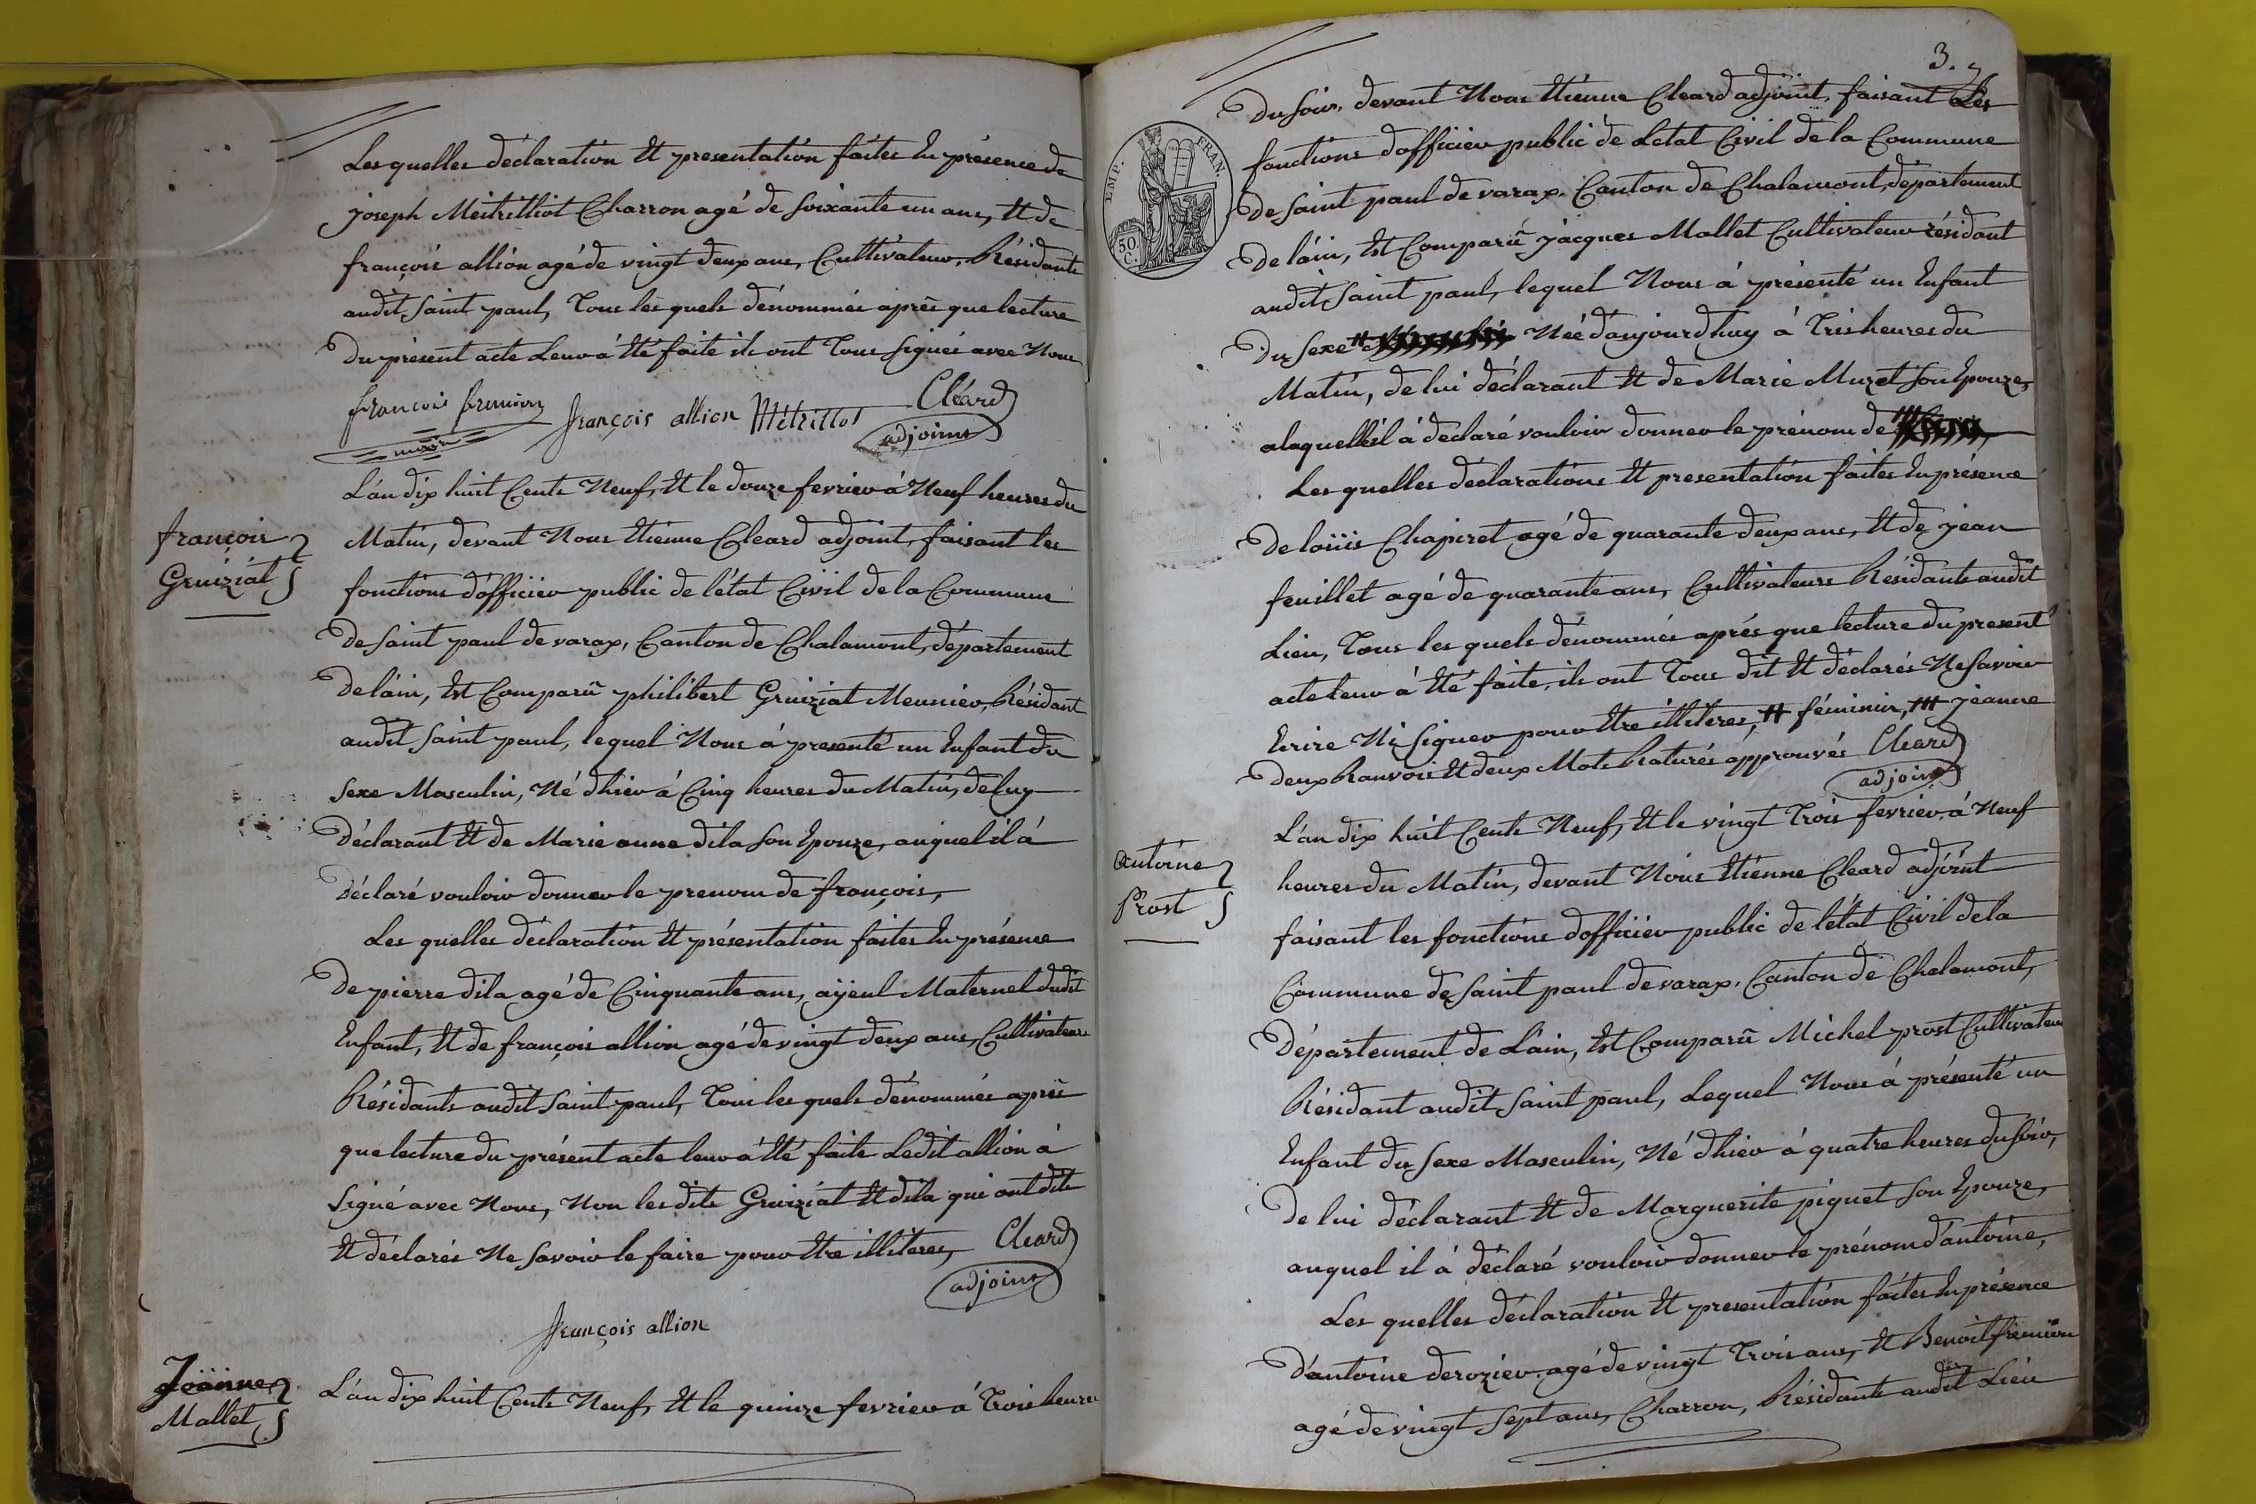 Les quelles déclaration Et presentation faites En présence de
joseph Meitrilliot Charron agé de soixante un ans, Et de
françois allion agé de vingt deux ans, Cultivateur, Résidants
audit saint paul, Tous les quels dénommés après que lecture
Du présent acte Leur à Eté faite ils ont Tous signés avec Nous
françois fremion
maire
françois allion
Métrillot
Cléard
adjoint
françois
Gruiziat
L'an dix huit Cents Neuf, Et le douze fevrier à Neuf heures du
Matin, devant Nous Etienne Cleard adjoint, faisant les
fonctions d'officier public de l'état Civil de la Commune
De saint paul de varax, Canton de Chalamont, département
De láin, Est Comparû philibert Gruiziat Meunier, Résidant
audit saint paul, lequel Nous à presenté un Enfant du
sexe Masculin, Né dhier à Cinq heures du Matin, de luy
Déclarant Et de Marie anne dila son Epouze, auquel il à
Déclaré vouloir donner le prenom de françois,
Les quelles déclaration Et présentation faites En présence
De pierre dila agé de Cinquante ans, ayeul Maternel dudit
Enfant, Et de françois allion agé de vingt deux ans, Cultivateurs
Résidants audit saint paul, Tous les quels dénommés après
que lecture du présent acte leur à Eté faite Ledit allion à
signé avec Nous, Non les dits Gruiziat Et dila qui ont dits
Et déclarés Ne savoir le faire pour Etre illiteres,
Cleard
adjoint
françois allion
Jeanne
Mallet
L'an dix huit Cents Neuf, Et le quinze fevrier à Trois heures
3.
EMP. FRAN.
50 C.
Du soir, devant Nous Etienne Cleard adjoint, faisant Les
fonctions d'officier public de Letat Civil de la Commune
De saint paul de varax, Canton de Chalamont, département
De láin, Est Comparû jacques Mallet Cultivateur résidant
audit saint paul, lequel Nous à présenté un Enfant
Du sexe # Née d'aujourdhuy à Trois heures du
Matin, de lui déclarant Et de Marie Muzet son Epouze,
alaquelle il à déclaré vouloir donner le prénom de ###
Les quelles déclarations Et presentation faites En présence
De loüis Chapiret agé de quarante deux ans, Et de jean
feuillet agé de quarante ans, Cultivateurs Résidants audit
Lieu, Tous les quels dénommés après que lecture du present
acte leur à Eté faite, ils ont Tous dit Et déclarés Ne savoir
Ecrire Ni signer pour Etre illiteres, # féminin, ### jeanne
Deux Ranvois Et deux Mots Raturés approuvés
Cleard
adjoint
Antoine
Prost
L'an dix huit Cents Neuf, Et le vingt Trois fevrier, à Neuf
heures du Matin, devant Nous Etienne Cleard adjoint
faisant les fonctions d'officier public de l'état Civil de la
Commune de saint paul de varax, Canton de Chalamont,
Département de L'ain, Est Comparû Michel prost Cultivateur
Résidant audit saint paul, Lequel Nous à présenté un
Enfant du sexe Masculin, Né dhier à quatre heures du soir,
De lui déclarant Et de Marguerite piquet son Epouze,
auquel il à déclaré vouloir donner le prénom d'antoine,
Les quelles déclaration Et presentation faites En présence
D'antoine derozier, agé de vingt Trois ans, Et Benoit fremion
agé de vingt sept ans, Charron, Résidants audit Lieu